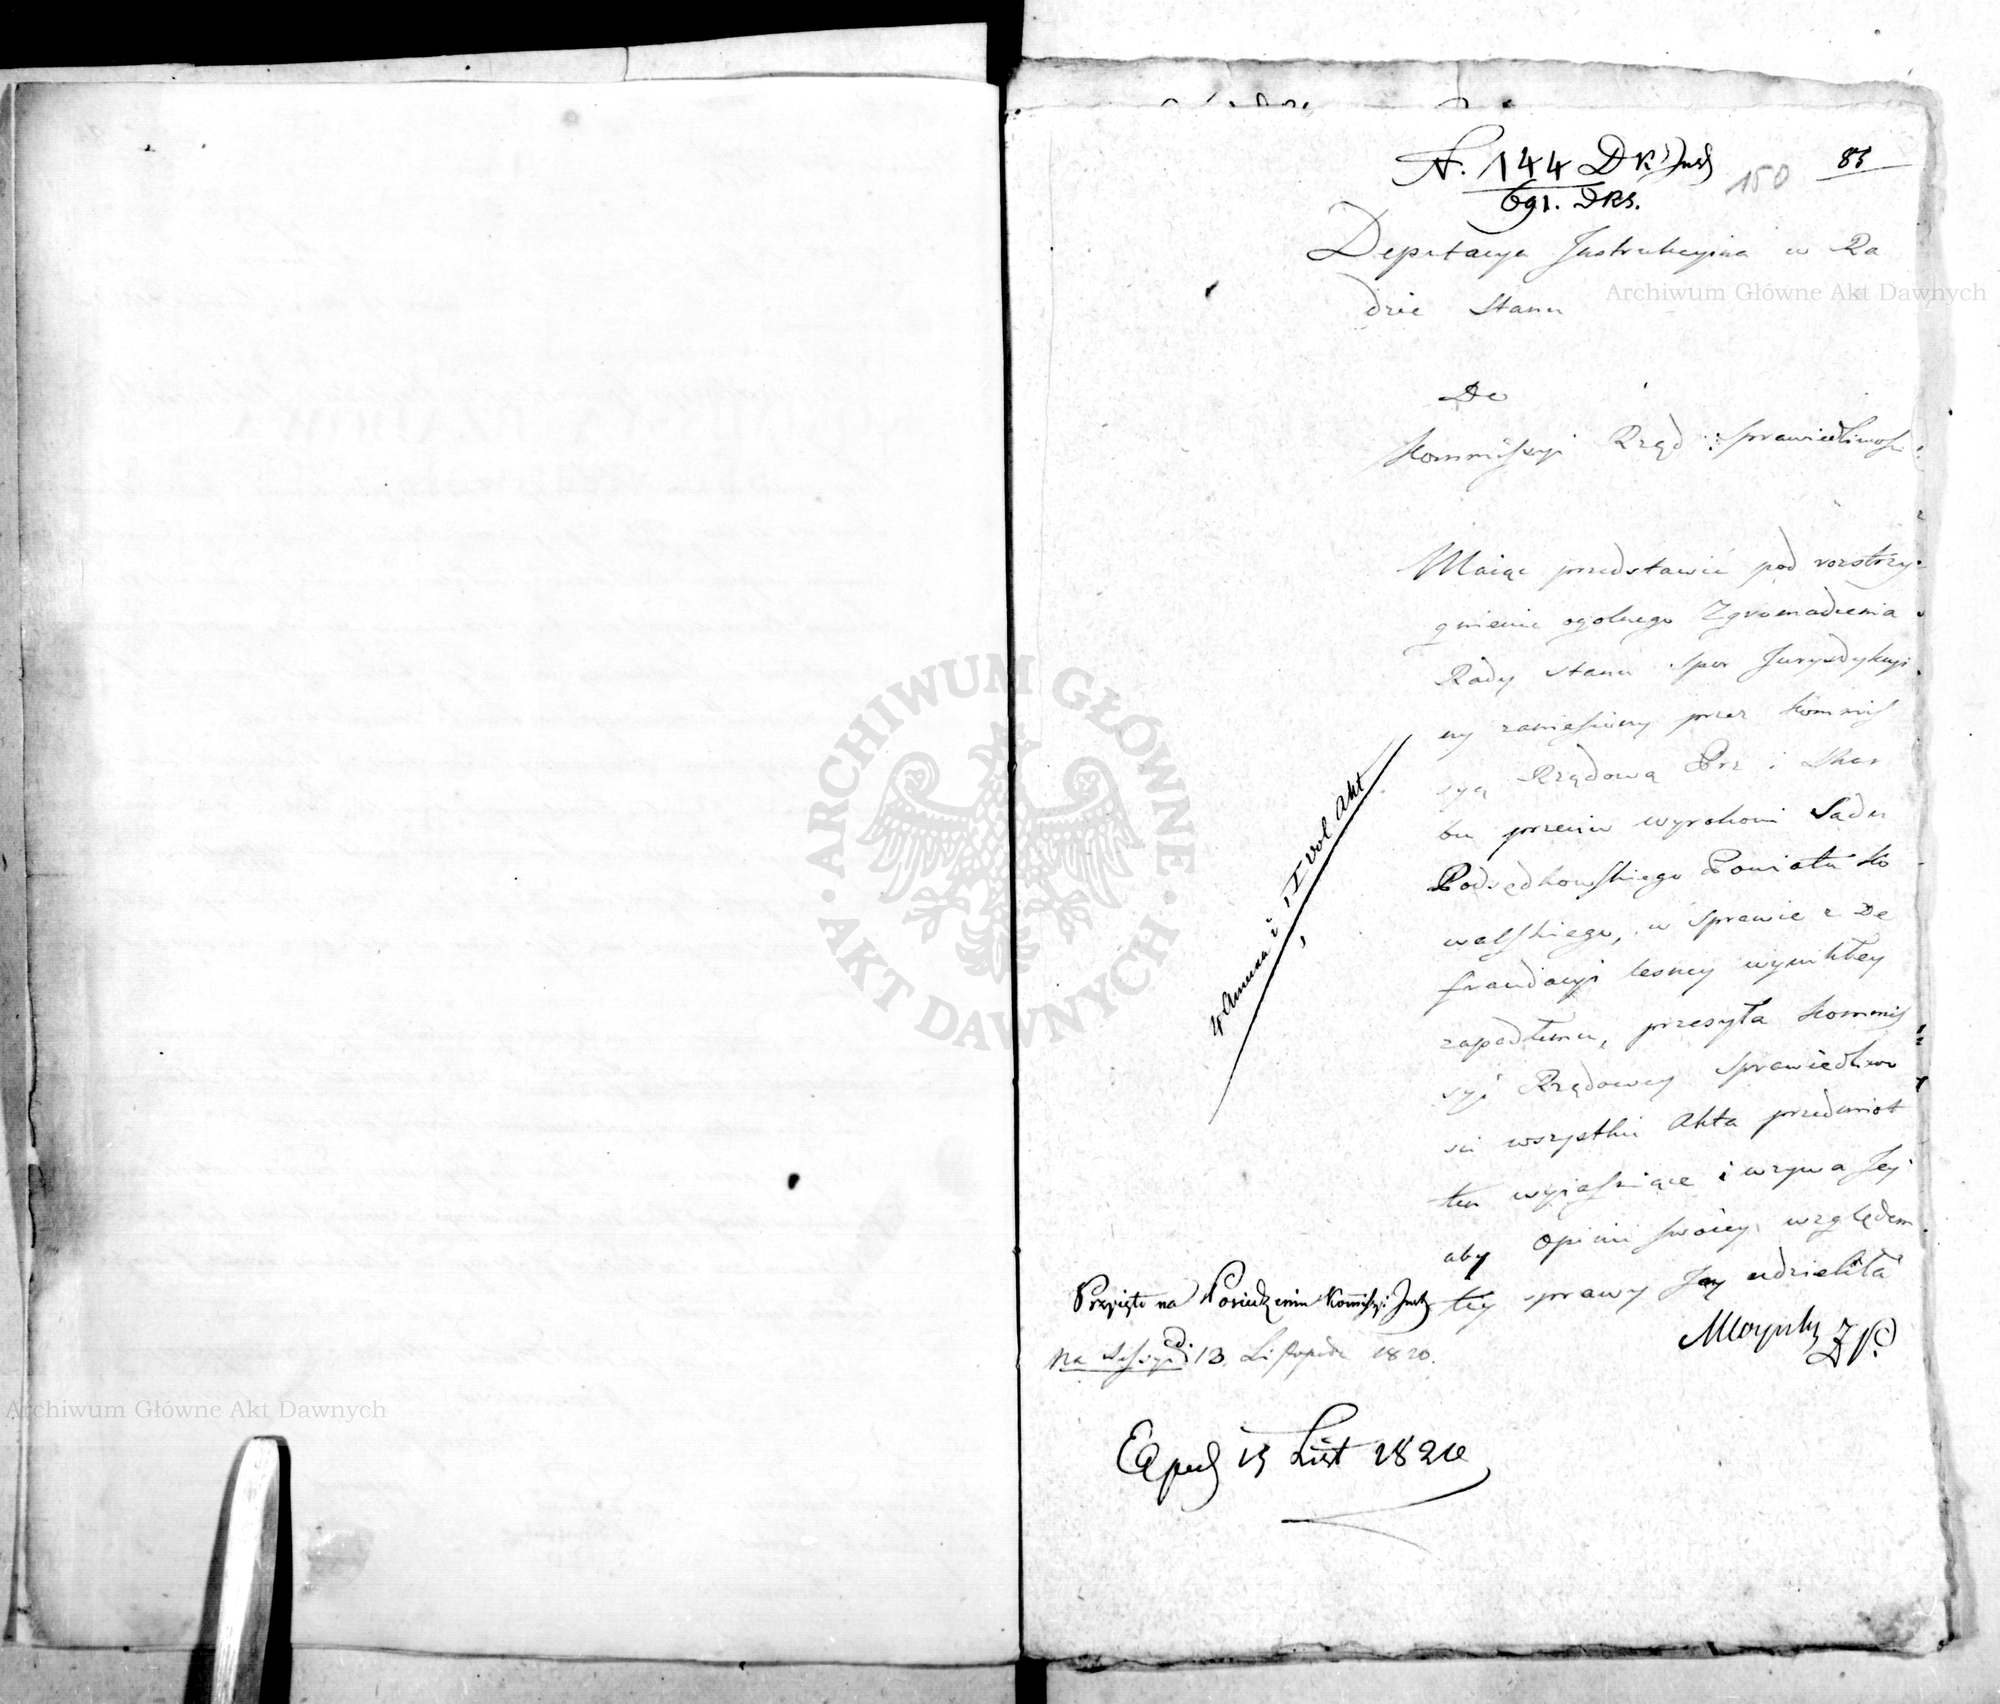 N. 144 DK Inst
691. DKS.
150
85
Deputacya Instrukcyina w Ra
dzie Stanu
Archiwum Główne Akt Dawnych
Do
Kommissyi Rząd: Sprawiedliwości
Maiąc przedstawić pod rozstrzy
gnienie ogolnego Zgromadzenia
Rady Stanu spor Jurysdykcyi
ny zaniesiony przez Kommis
syą Rządową Prz i Skar
bu przeciw wyrokowi Sądu
Podsędkowskiego Powiatu Ko
walskiego, w sprawie z De
fraudacyi lesney wynikłey
zapadłemu, przesyła Kommis
syi Rządowey Sprawiedliwo
sci wszystkie Akta przedmiot
ten wyiaśniące i wzywa Jey
aby opinii swoiey względem
tey sprawy Jey udzieliła
4 Annexa i 1 vol Akt
Przyięto na Posiedzeniu Kommissyi Inst
na Sessyi d. 13. Listopada 1820.
Exped 15 List 1820
ARCHIWUM GŁÓWNE
AKT DAWNYCH
Archiwum Główne Akt Dawnych